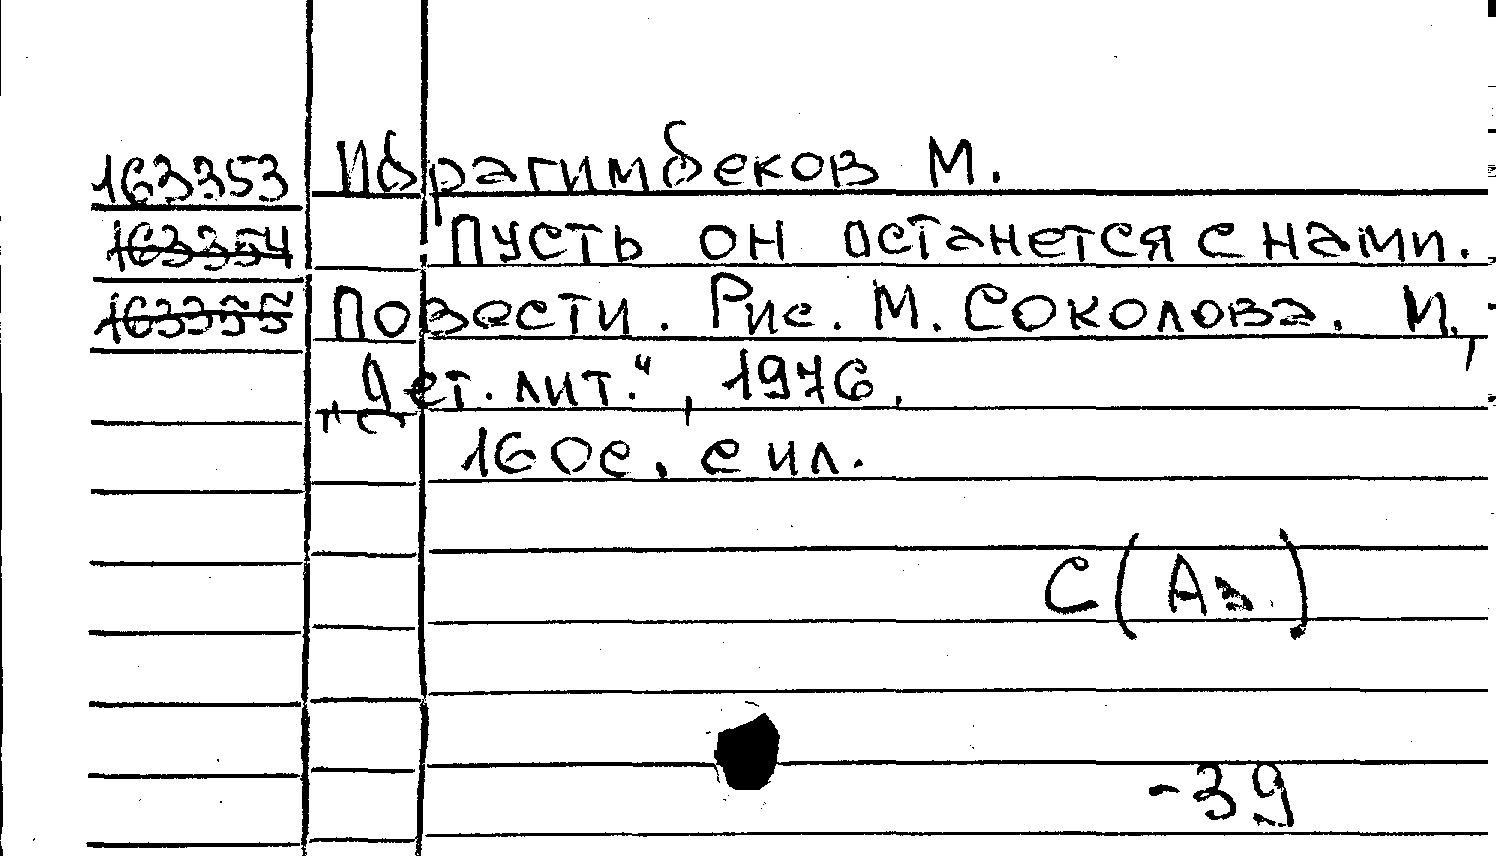 163353 Ибрагимбеков М.
163354 Пусть он останется с нами.
163355 Повести. Рис. М. Соколова. М.,
„Дет. лит.“, 1976.
160с. с ил.
С(Аз.)
-39